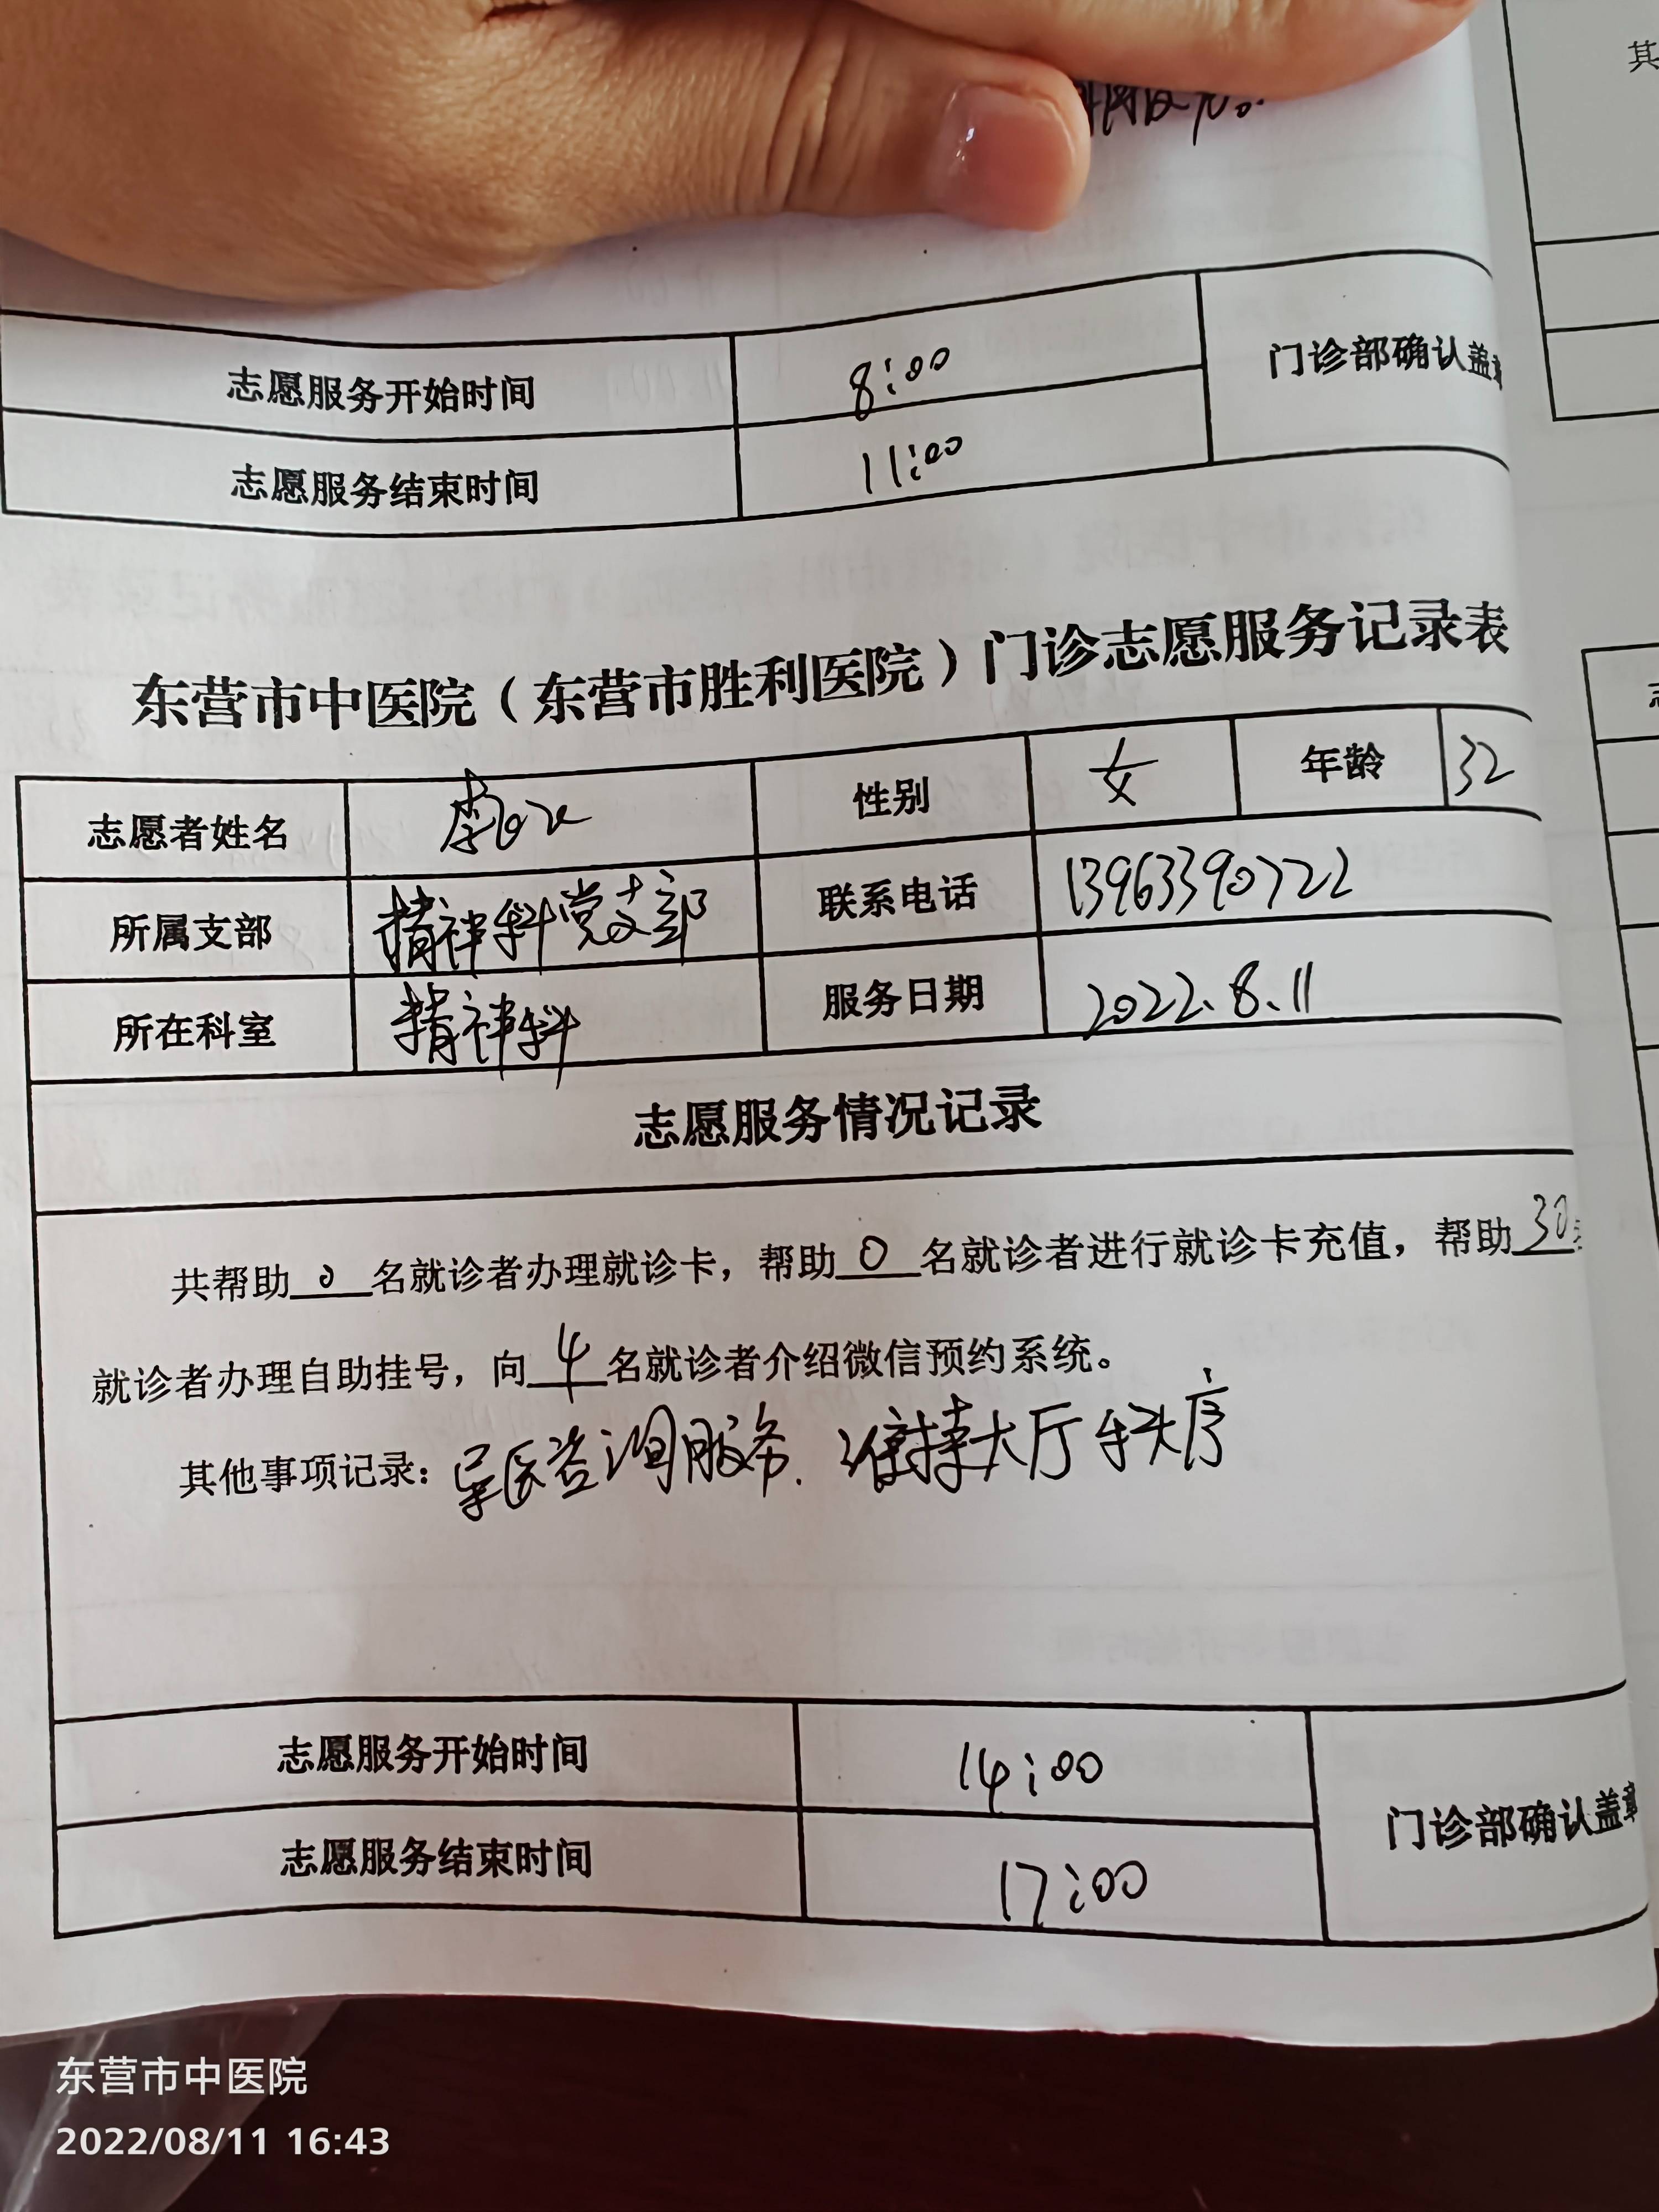 其
志愿服务开始时间 8:00 门诊部确认盖章
志愿服务结束时间 11:00
东营市中医院（东营市胜利医院）门诊志愿服务记录表
志愿者姓名 性别 女 年龄 32
所属支部 精神科党支部 联系电话 13963390722
所在科室 精神科 服务日期 2022.8.11
志愿服务情况记录
共帮助 0 名就诊者办理就诊卡，帮助 0 名就诊者进行就诊卡充值，帮助 30
就诊者办理自助挂号，向 4 名就诊者介绍微信预约系统。
其他事项记录：导医咨询服务.维持大厅秩序
志愿服务开始时间 14:00 门诊部确认盖章
志愿服务结束时间 17:00
东营市中医院
2022/08/11 16:43